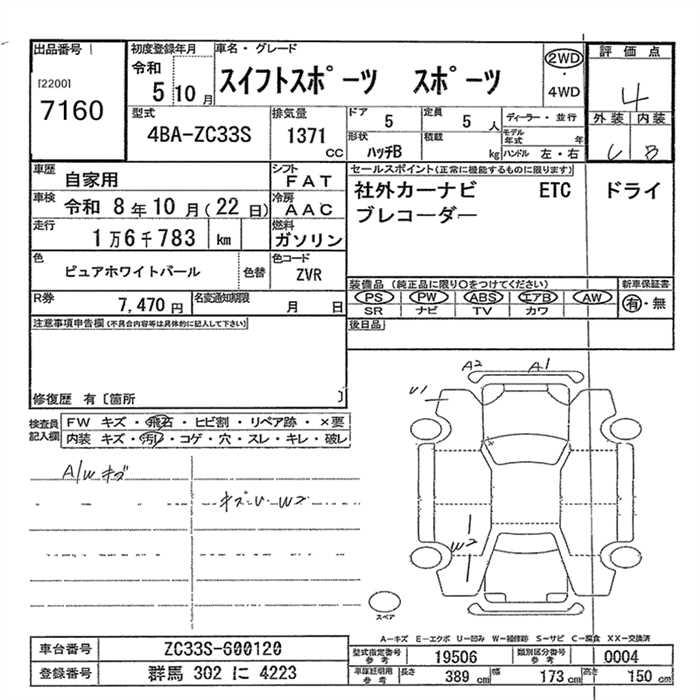 出品番号 初度登録年月 車名・グレード 評価点
[2200] 令和 スイフトスポーツ スポーツ 2WD
7160 5 10 月 ・ 4WD 4
型式 排気量 ドア 5 定員 5 人 ディーラー・並行 外装 内装
4BA-ZC33S 1371 cc 形状 ハッチB 積載 kg モデル年式 年
ハンドル 左・右 C B
車歴 自家用 シフト FAT セールスポイント(正常に機能するものに限ります)
車検 令和 8年10月(22日) 冷房 AAC 社外カーナビ ETC ドライ
ブレコーダー
走行 1万6千783 km 燃料 ガソリン
色 ピュアホワイトパール 色替 色コード ZVR
装備品(純正品に限り○をつけてください) 新車保証書
R券 7,470円 名変通知期限 月 日 PS PW ABS エアB AW 有・無
SR ナビ TV カワ
注意事項申告欄(不具合内容等は具体的に記入して下さい) 後日品
修復歴 有〔箇所 〕
検査員記入欄 FW キズ・飛石・ヒビ割・リペア跡・×要
内装 キズ・汚レ・コゲ・穴・スレ・キレ・破レ
A2 A1
U1
A/W キズ
キズU W2
W2
スペア
A―キズ E―エクボ U―凹み W―補修跡 S―サビ C―腐食 XX―交換済
車台番号 ZC33S-600120 型式指定番号 参考 19506 類別区分番号 参考 0004
登録番号 群馬 302 に 4223 車庫証明用 参考 長さ 389 cm 幅 173 cm 高さ 150 cm